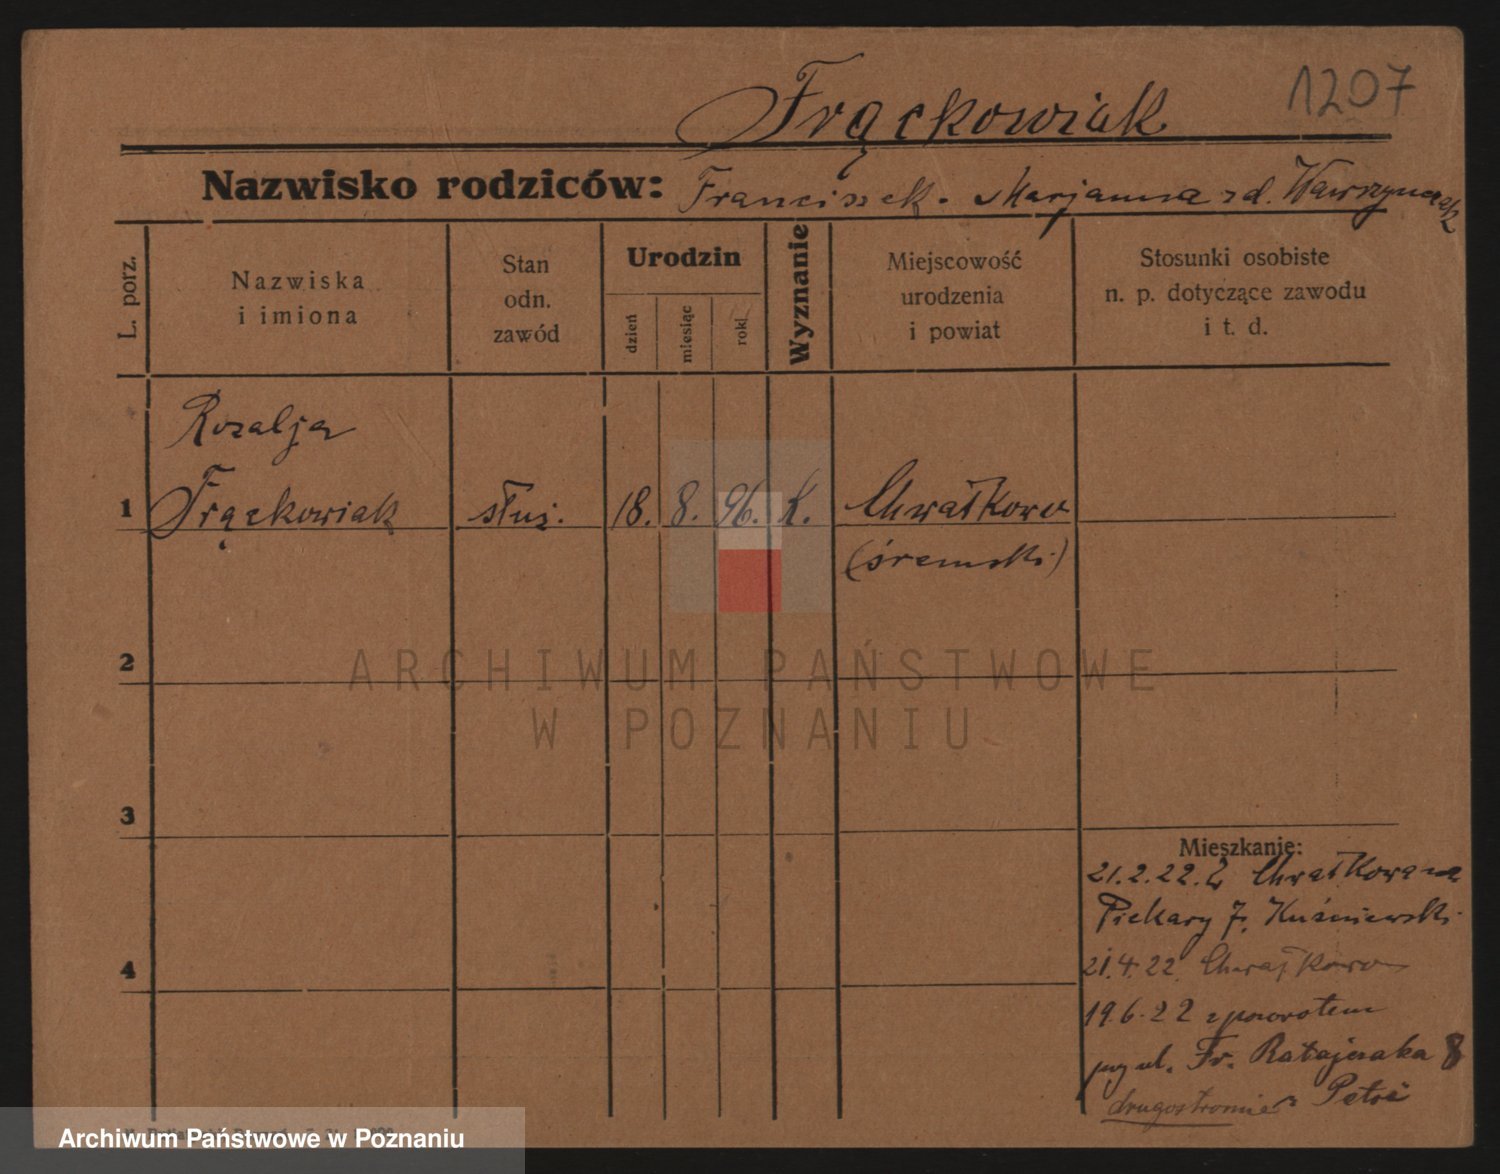 1207
Frąckowiak
Nazwisko rodziców: Franciszek. Marjanna zd. Wawrzynczak
L. porz.
Nazwiska
i imiona
Stan
odn.
zawód
Urodzin
dzień
miesiąc
roki
Wyznanie
Miejscowość
urodzenia
i powiat
Stosunki osobiste
n. p. dotyczące zawodu
i t. d.
Rozalja
1 Frąckowiak służ. 18. 8. 96. K. Chwałkowo
(śremski)
ARCHIWUM PAŃSTWOWE
W POZNANIU
2
3
Mieszkanie:
21.2.22. z Chwałkowa na
Piekary 7, Kuśniewski
4
21.4.22 Chwałkowo
19.6.22 z powrotem
przy ul. Fr. Ratajczaka 8
drugostronnie
Archiwum Państwowe w Poznaniu